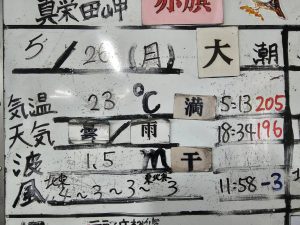 真栄田岬 赤旗
5/26(月) 大潮
気温 23℃ 満 5:13 205
天気 雲/雨 18:34 196
波 1.5m 干
風 ~3~3~3 11:58 -3